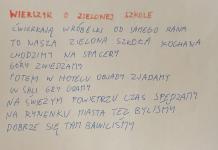 WIERSZYK O ZIELONEJ SZKOLE
ĆWIERKAJĄ WRÓBELKI OD SAMEGO RANA
TO NASZA ZIELONA SZKOŁA KOCHANA
CHODZIMY NA SPACERY
GÓRY ZWIEDZAMY
POTEM W HOTELU OBIADY ZJADAMY
W SALI GRY GRAMY
NA ŚWIEŻYM POWIETRZU CZAS SPĘDZAMY
NA RYNEKU MIASTA TEŻ BYLIŚMY
DOBRZE SIĘ TAM BAWILIŚMY